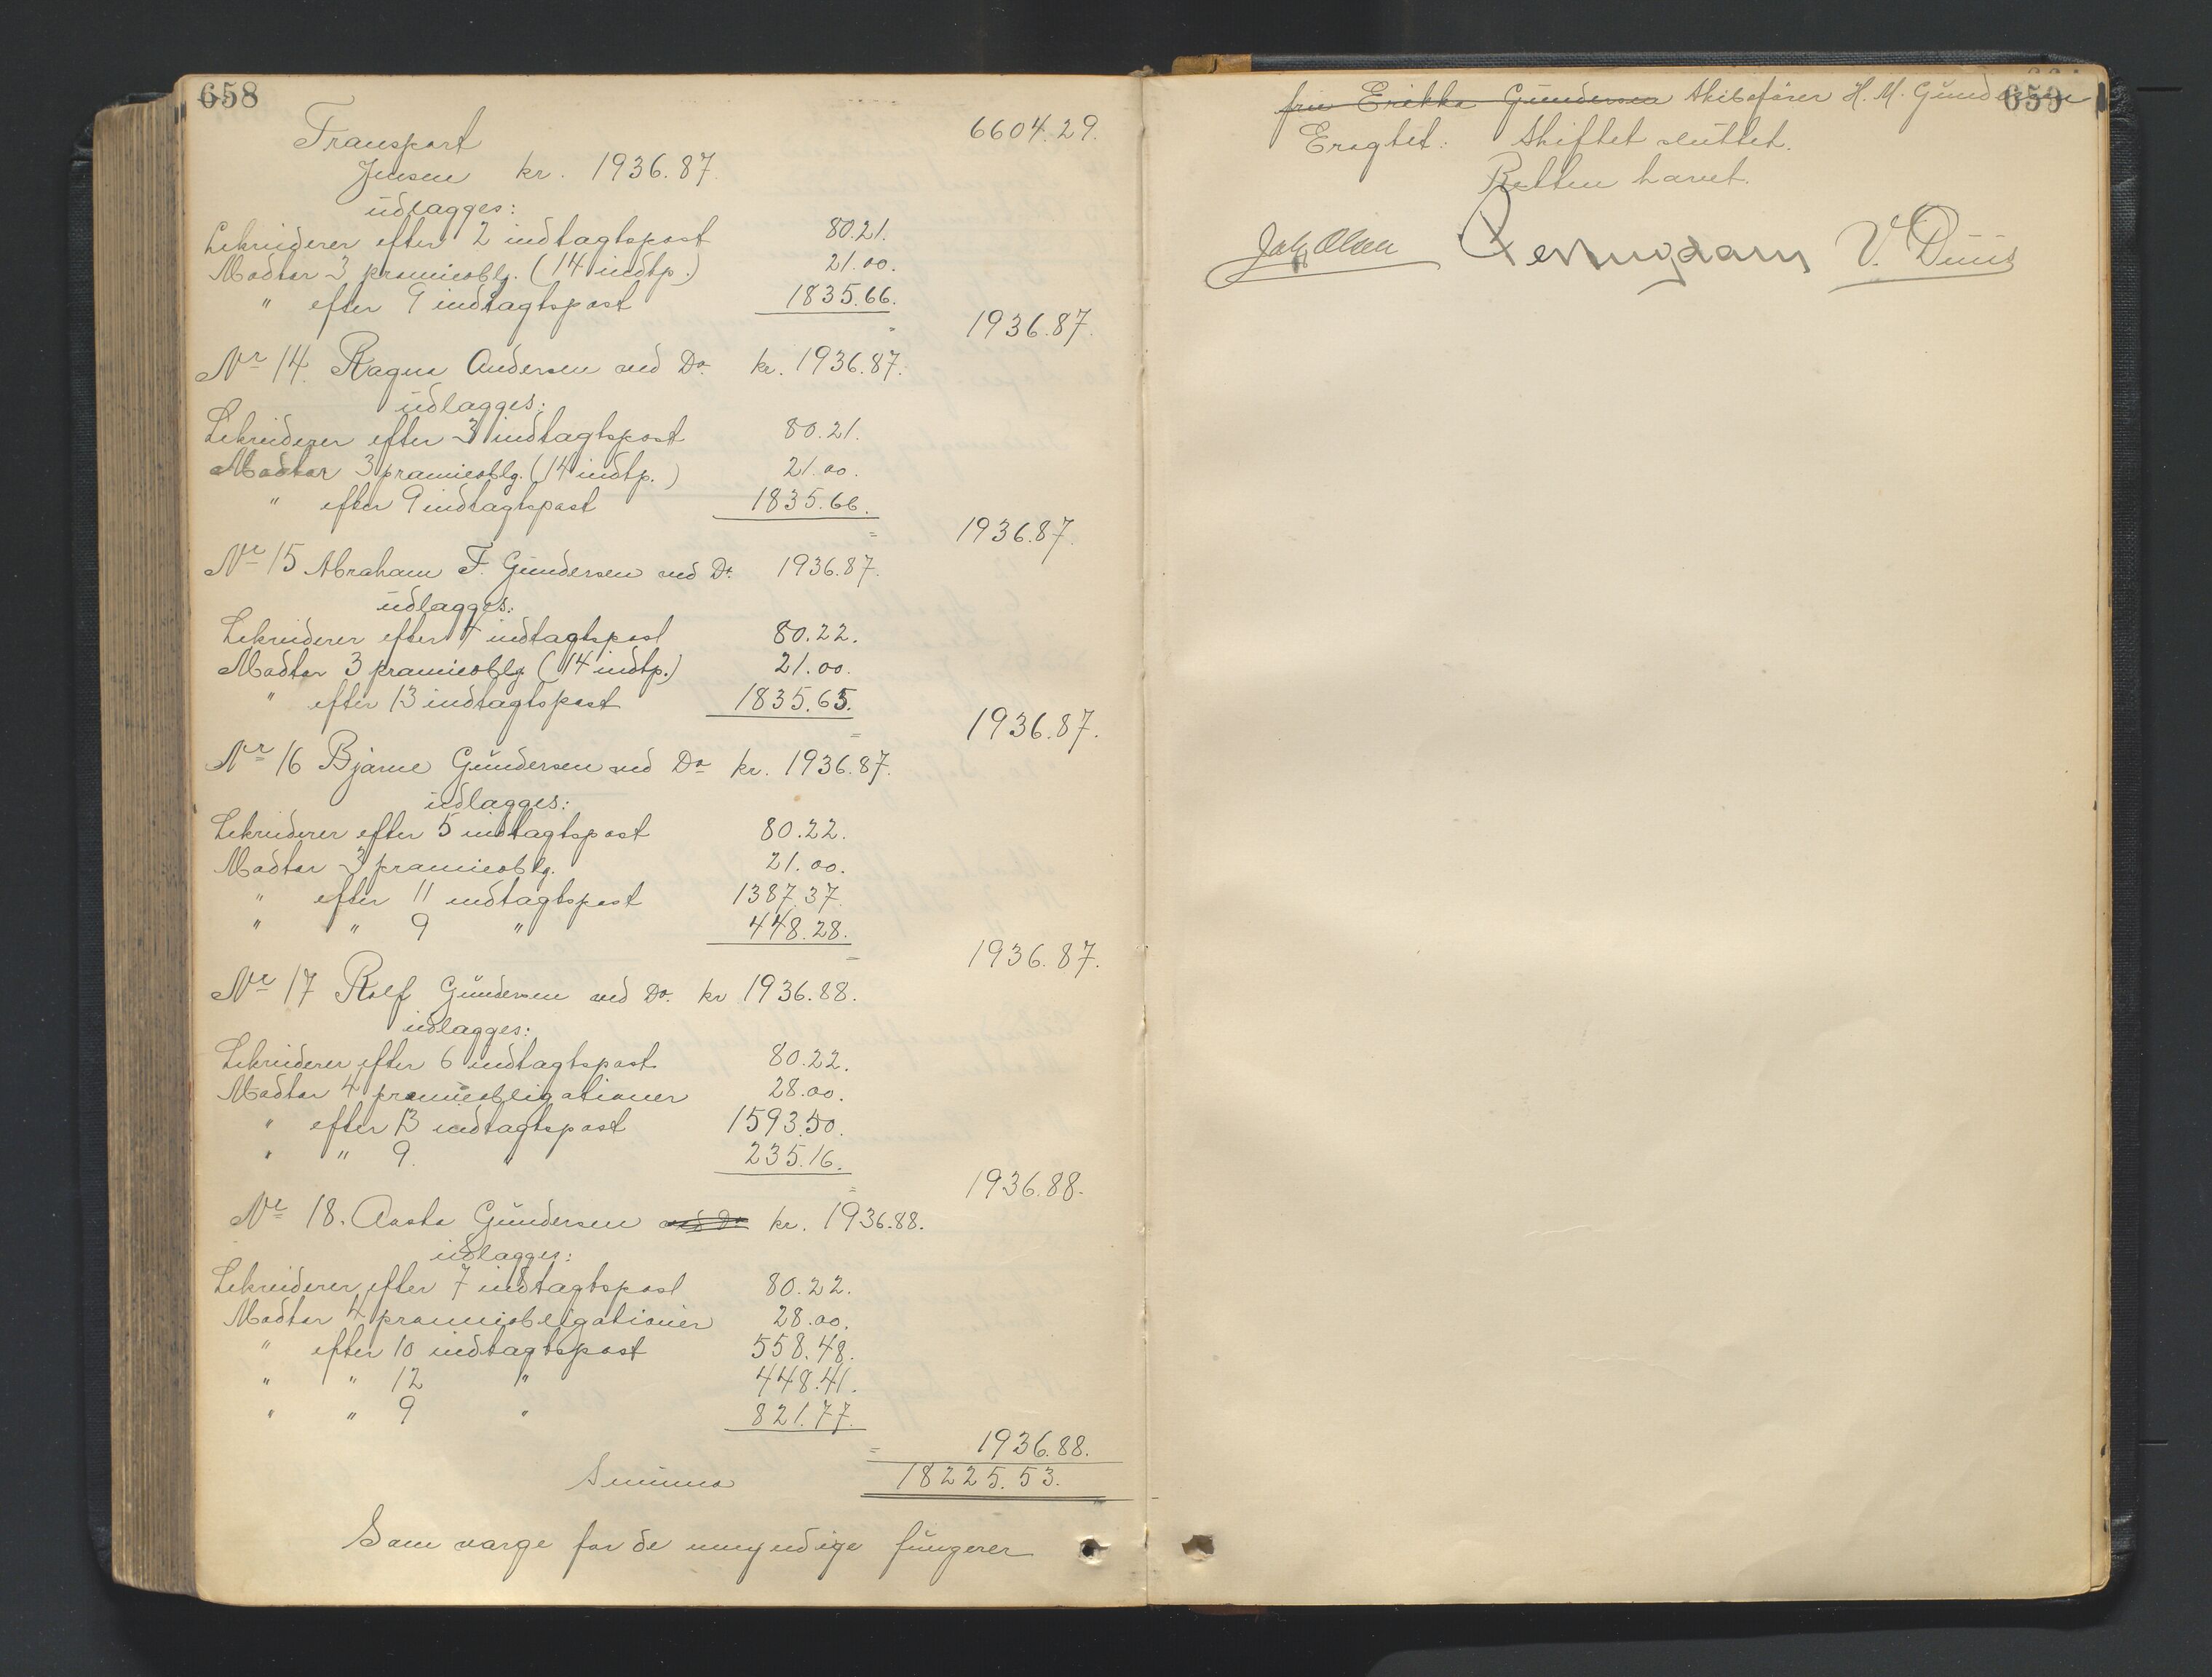 658
Transport 6604.29.
Jensen kr. 1936.87.
udlægges:
Likviderer efter 2 indtægtspost 80.21.
Modtar 3 præmieoblg. (14 indtp.) 21.00.
" efter 9 indtægtspost 1835.66.
= 1936.87.
Nr 14. Ragna Andersen ved Do. kr. 1936.87.
udlægges:
Likviderer efter 3 indtægtspost 80.21.
Modtar 3 præmieoblg. (14 indtp.) 21.00.
" efter 9 indtægtspost 1835.66.
= 1936.87.
Nr 15 Abraham F. Gundersen ved Do. 1936.87.
udlægges:
Likviderer efter 4 indtægtspost 80.22.
Modtar 3 præmieoblg. (14 indtp.) 21.00.
" efter 13 indtægtspost 1835.65.
= 1936.87.
Nr 16 Bjarne Gundersen ved Do kr. 1936.87.
udlægges:
Likviderer efter 5 indtægtspost 80.22.
Modtar 3 præmieoblg. 21.00.
" efter 11 indtægtspost 1387.37.
" " 9 " 448.28.
= 1936.87.
Nr 17 Rolf Gundersen ved Do. kr 1936.88.
udlægges:
Likviderer efter 6 indtægtspost 80.22.
Modtar 4 præmieobligationer 28.00.
" efter 13 indtægtspost 1593.50.
" " 9. " 235.16.
= 1936.88.
Nr 18. Aasta Gundersen ved Do kr. 1936.88.
udlægges:
Likviderer efter 7 indtægtspost 80.22.
Modtar 4 præmieobligationer 28.00.
" efter 10 indtægtspost 558.48.
" " 12 " 448.41.
" " 9 " 821.77.
= 1936.88.
Summa 18225.53.
Som værge for de umyndige fungerer
659
fru Erikka Gundersen Skibsfører H. M. Gundersen
Eragtet: Skiftet sluttet.
Retten hævet.
Olsen V. Duus